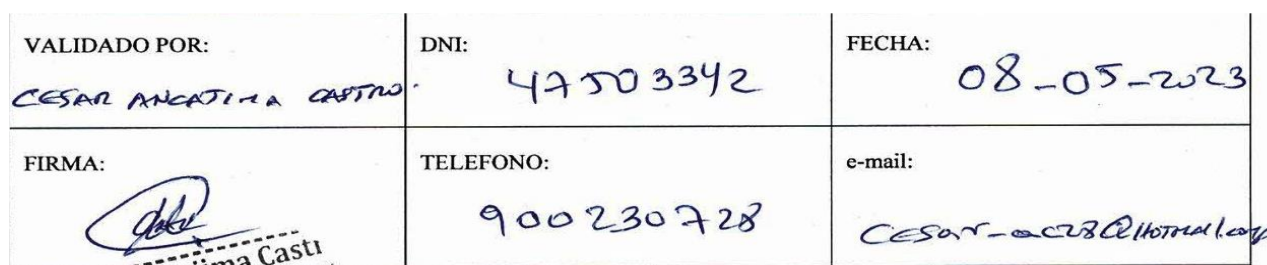 VALIDADO POR:
CESAR ANCATIMA CASTRO.
DNI:
47503342
FECHA:
08-05-2023
FIRMA:
TELEFONO:
900230728
e-mail:
cesar_ac28@HOTMAIL.com
ima Casti